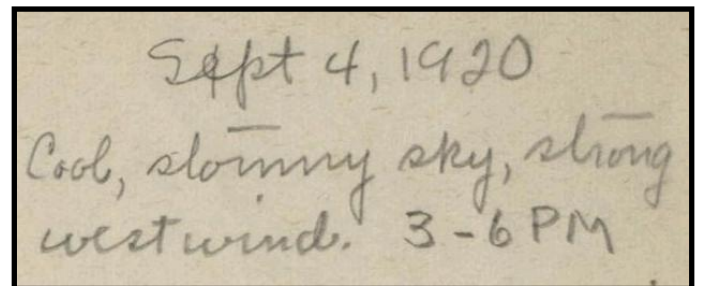 Sept 4, 1920
Cool, stormy sky, strong
west wind. 3-6 PM